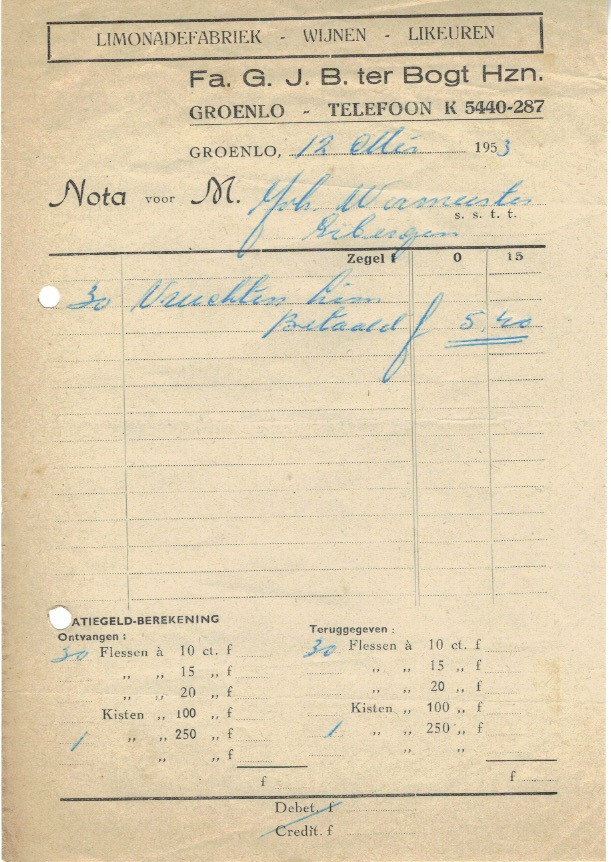 LIMONADEFABRIEK - WIJNEN - LIKEUREN
Fa. G. J. B. ter Bogt Hzn.
GROENLO - TELEFOON K 5440-287
GROENLO, 12 Mei 1953
Nota voor M. Joh. Wormeester
s. s. t. t.
Eibergen
Zegel f 0 15
30 Vruchten lim
Betaald f 5,40
ATIEGELD-BEREKENING
Ontvangen :
30 Flessen à 10 ct. f
,, ,, 15 ,, f
,, ,, 20 ,, f
Kisten ,, 100 ,, f
1 ,, ,, 250 ,, f
,, ,, f
f
Teruggegeven :
30 Flessen à 10 ct. f
,, ,, 15 ,, f
,, ,, 20 ,, f
Kisten ,, 100 ,, f
1 ,, ,, 250 ,, f
,, ,,
f
Debet. f
Credit. f